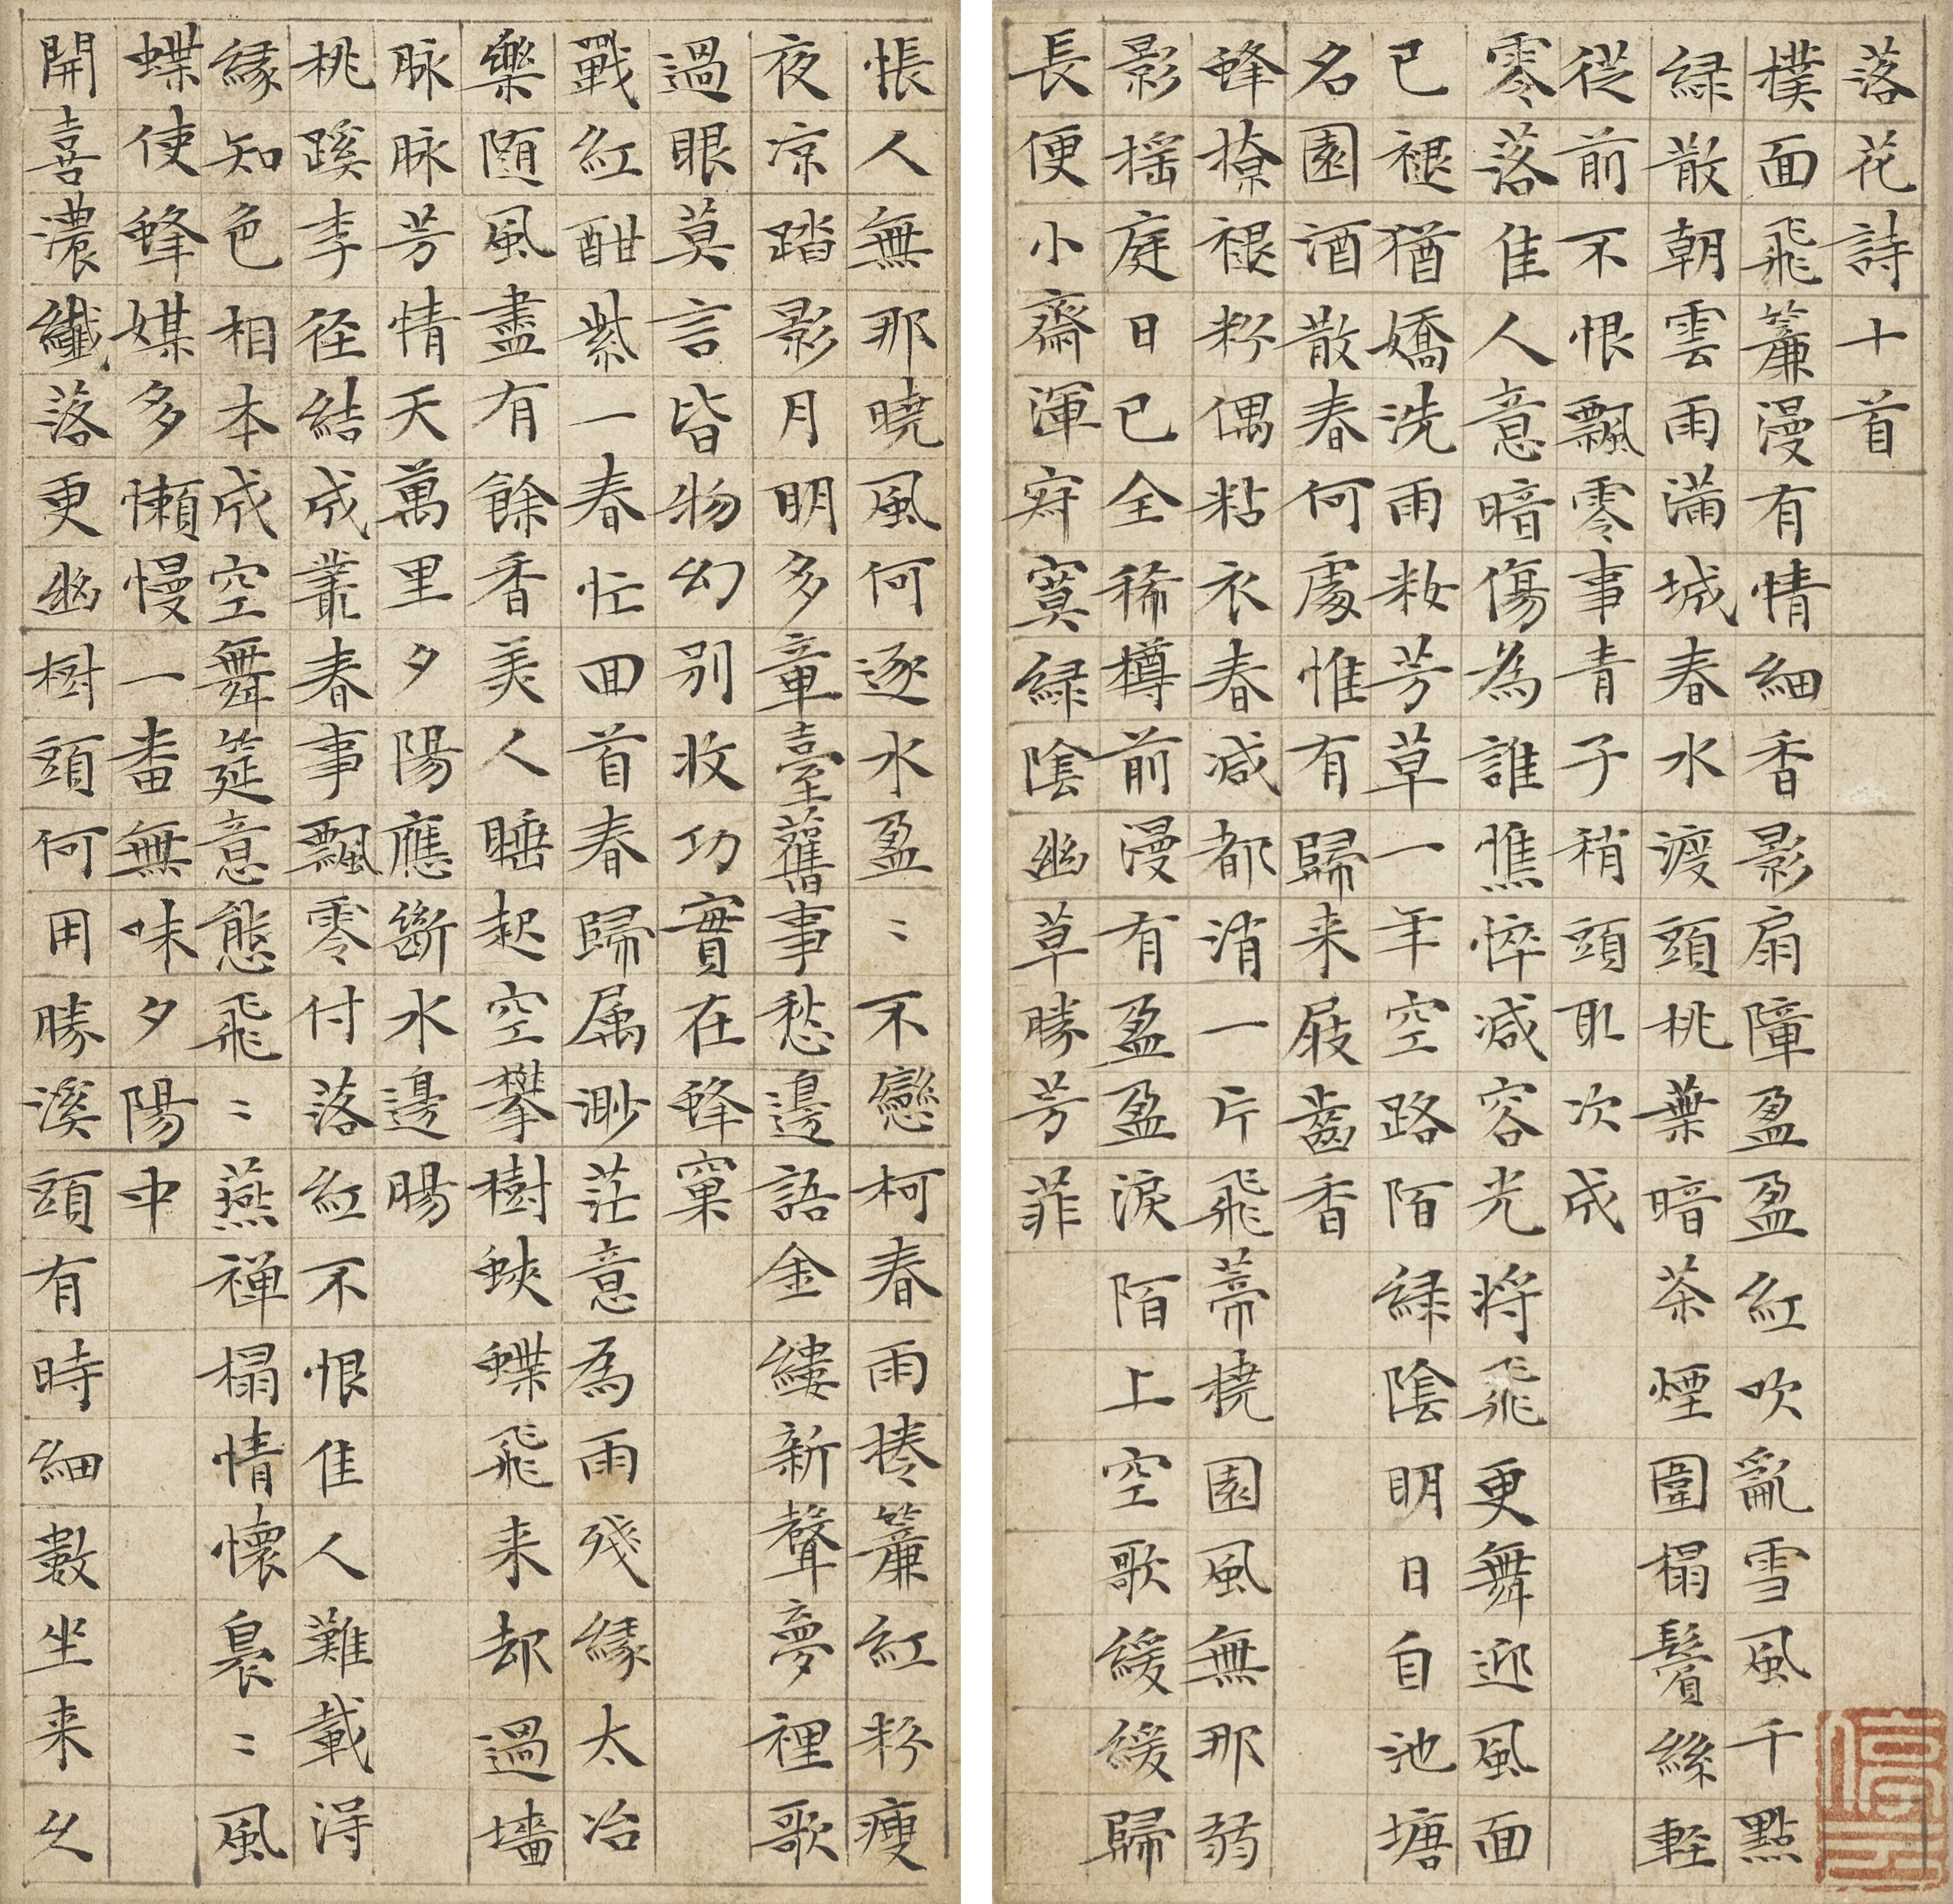 落花詩十首
樸面飛簾漫有情細香影扇障盈盈紅吹亂雪風千點
緑散朝雲雨滿城春水渡頭桃葉暗茶煙圍榻鬢絲輕
從前不恨飄零事青子稍頭取次成
零落佳人意暗傷為誰憔悴減容光将飛更舞迎風面
已褪猶嬌洗雨粧芳草一年空路陌緑陰明日自池塘
名園酒散春何處惟有歸来屐齒香
蜂撩褪粉偶粘衣春減都消一片飛蒂橈園風無那弱
影揺庭日已全稀樽前漫有盈盈淚陌上空歌緩緩歸
長便小齋渾寂寞緑陰幽草勝芳菲
悵人無那曉風何逐水盈〻不戀柯春雨捲簾紅粉瘦
夜凉踏影月明多章臺舊事愁邊語金縷新聲夢裡歌
過眼莫言皆物幻别收功實在蜂窠
戰紅酣紫一春忙回首春歸属渺茫意為雨残緣太冶
樂随風盡有餘香美人睡起空攀樹蛺蝶飛来却過墻
脉脉芳情天萬里夕陽應斷水邊腸
桃蹊李径結成叢春事飄零付落紅不恨佳人難載淂
緣知色相本成空舞筵意態飛〻燕禅榻情懷裊〻風
蝶使蜂媒多懶慢一畨無味夕陽中
開喜濃纖落更幽樹頭何用勝溪頭有時細數坐来久